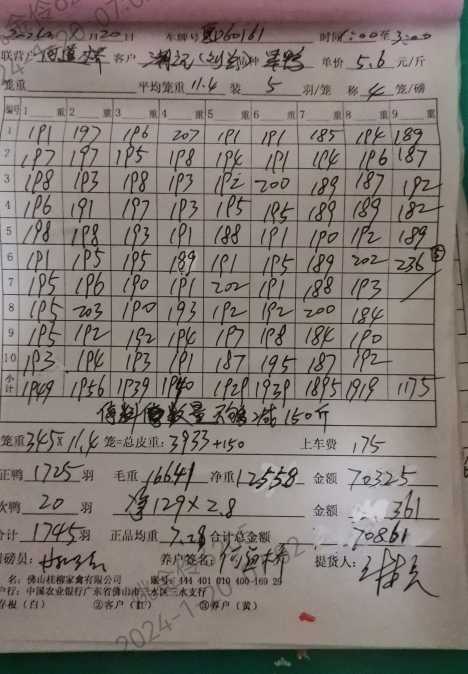 2024年1月20日 车牌号 时间1:00至3:00
联营户 客户 品种 单价 5.6 元/斤
笼重 平均笼重 11.4 装 5 羽/笼 称 4 笼/磅
编号 1 重 2 重 3 重 4 重 5 重 6 重 7 重 8 重 9 重
1 191 197 196 207 191 191 185 194 189
2 197 197 195 198 194 191 194 196 187
3 198 193 198 193 192 200 189 187 192
4 196 191 197 193 195 195 189 189 182
5 198 198 193 191 188 191 190 192 189
6 191 195 195 189 191 195 189 202 236 ⑤
7 195 196 190 191 202 191 188 193
8 195 203 190 193 192 192 200 184
9 195 192 192 194 197 198 184 190
10 193 194 193 191 187 195 187 192
小计 1949 1956 1939 1940 1929 1939 1895 1919 1175
数量不够 减150斤
笼重 345×11.4 笼=总皮重: 3933+150 上车费 175
正鸭 1725 羽 毛重 16641 净重 12558 金额 70325
次鸭 20 羽 净129×2.8 金额 361
合计 1745 羽 正品均重 7.28 合计总金额 70861
司磅员: 养户签名: 提货人:
名: 佛山桂柳家禽有限公司 账号: 444 401 010 400 169 29
户行: 中国农业银行广东省佛山市三水区三水支行
存根 (白) ②客户 (红) ③养户 (黄)
2024-1-20